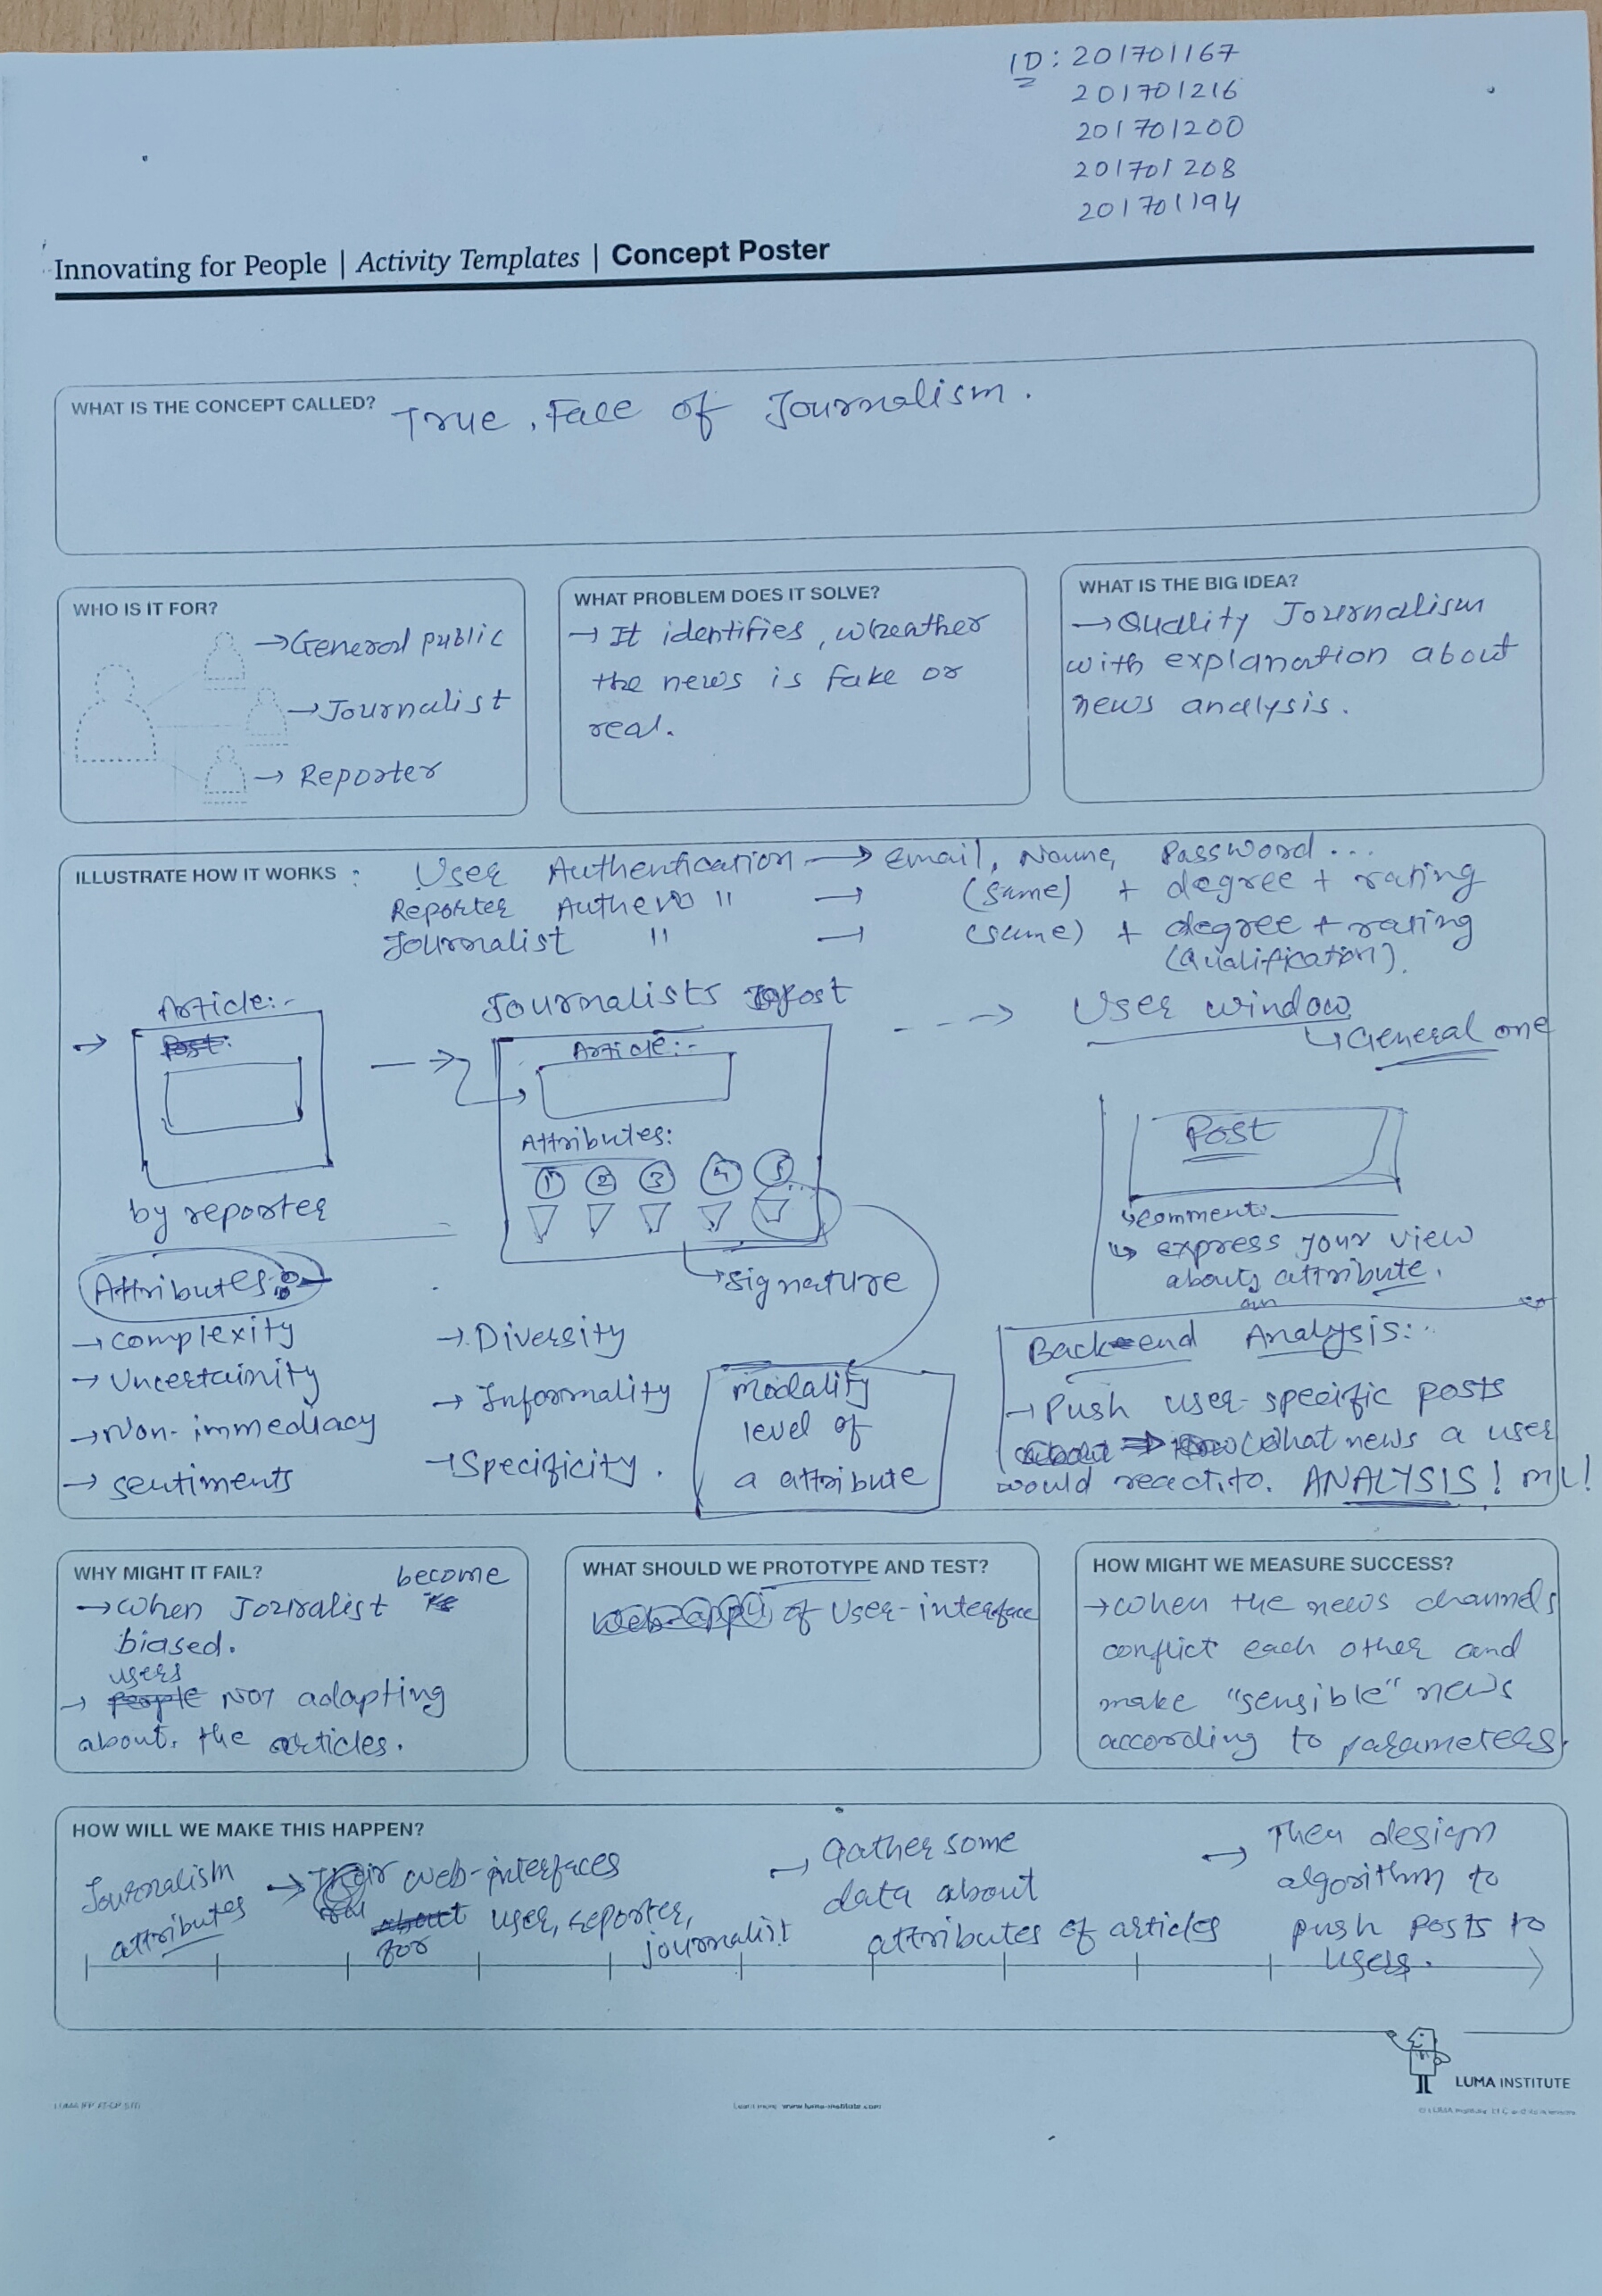 ID: 201701167
201701216
201701200
201701208
201701194
Innovating for People | Activity Templates | Concept Poster
WHAT IS THE CONCEPT CALLED? True Face of Journalism.
WHO IS IT FOR?
→ General public
→ Journalist
→ Reporter
WHAT PROBLEM DOES IT SOLVE?
→ It identifies, wheather
the news is fake or
real.
WHAT IS THE BIG IDEA?
→ Quality Journalism
with explanation about
news analysis.
ILLUSTRATE HOW IT WORKS : User Authentication → Email, Name, Password ...
Reporter " → (same) + degree + rating
Journalist " → (same) + degree + rating
(Qualification).
→ Article:-
Post:
by reporter
Journalists post
Article:-
Attributes:
① ② ③ ④ ⑤
→ signature
---> User window
↳ General one
Post
↳ comment:
↳ express your view
about attribute.
an
Attributes:-
→ complexity
→ Uncertainity
→ Non-immediacy
→ sentiments
→ Diversity
→ Informality
→ Specificity.
Modality
level of
a attribute
Back-end Analysis:-
→ Push user-specific posts
about ⇒ what news a user
would react to. ANALYSIS! ML!
WHY MIGHT IT FAIL?
→ when Jouralist become
biased.
→ people users NOT adapting
about the articles.
WHAT SHOULD WE PROTOTYPE AND TEST?
Web-app of User-interface
HOW MIGHT WE MEASURE SUCCESS?
→ when the news channels
conflict each other and
make "sensible" news
according to parameters.
HOW WILL WE MAKE THIS HAPPEN?
Journalism
attributes
→ web-interfaces
about for user, reporter,
journalist
→ Gather some
data about
attributes of articles
→ Then design
algorithm to
push posts to
users.
LUMA INSTITUTE
Learn more: www.luma-institute.com